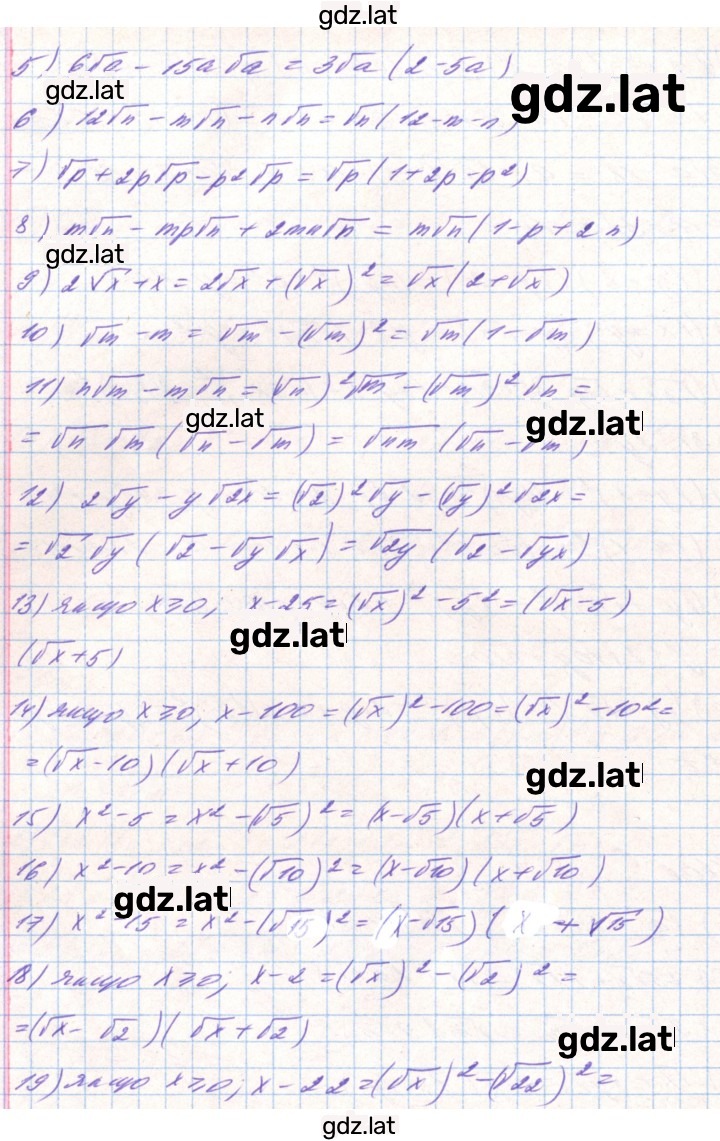 gdz.lat
5) 6√a - 15a√a = 3√a(2-5a)
gdz.lat
gdz.lat
6) 12√n - m√n - n√n = √n(12-m-n)
7) √p + 2p√p - p²√p = √p(1+2p-p²)
8) m√n - mp√n + 2mn√n = m√n(1-p+2n)
gdz.lat
9) 2√x + x = 2√x + (√x)² = √x(2+√x)
10) √m - m = √m - (√m)² = √m(1-√m)
11) n√m - m√n = (√n)²√m - (√m)²√n =
gdz.lat
gdz.lat
= √n √m (√n - √m) = √nm (√n - √m)
12) 2√y - y√2x = (√2)²√y - (√y)²√2x =
= √2 √y (√2 - √y √x) = √2y (√2 - √yx)
13) якщо x≥0; x-25 = (√x)² - 5² = (√x-5)
gdz.lat
(√x+5)
14) якщо x≥0, x-100 = (√x)² - 100 = (√x)² - 10² =
= (√x-10)(√x+10)
gdz.lat
15) x²-5 = x² - (√5)² = (x-√5)(x+√5)
16) x²-10 = x² - (√10)² = (x-√10)(x+√10)
gdz.lat
17) x²-15 = x² - (√15)² = (x-√15)(x+√15)
18) якщо x≥0; x-2 = (√x)² - (√2)² =
= (√x - √2)(√x + √2)
gdz.lat
19) якщо x≥0; x-22 = (√x)² - (√22)² =
gdz.lat